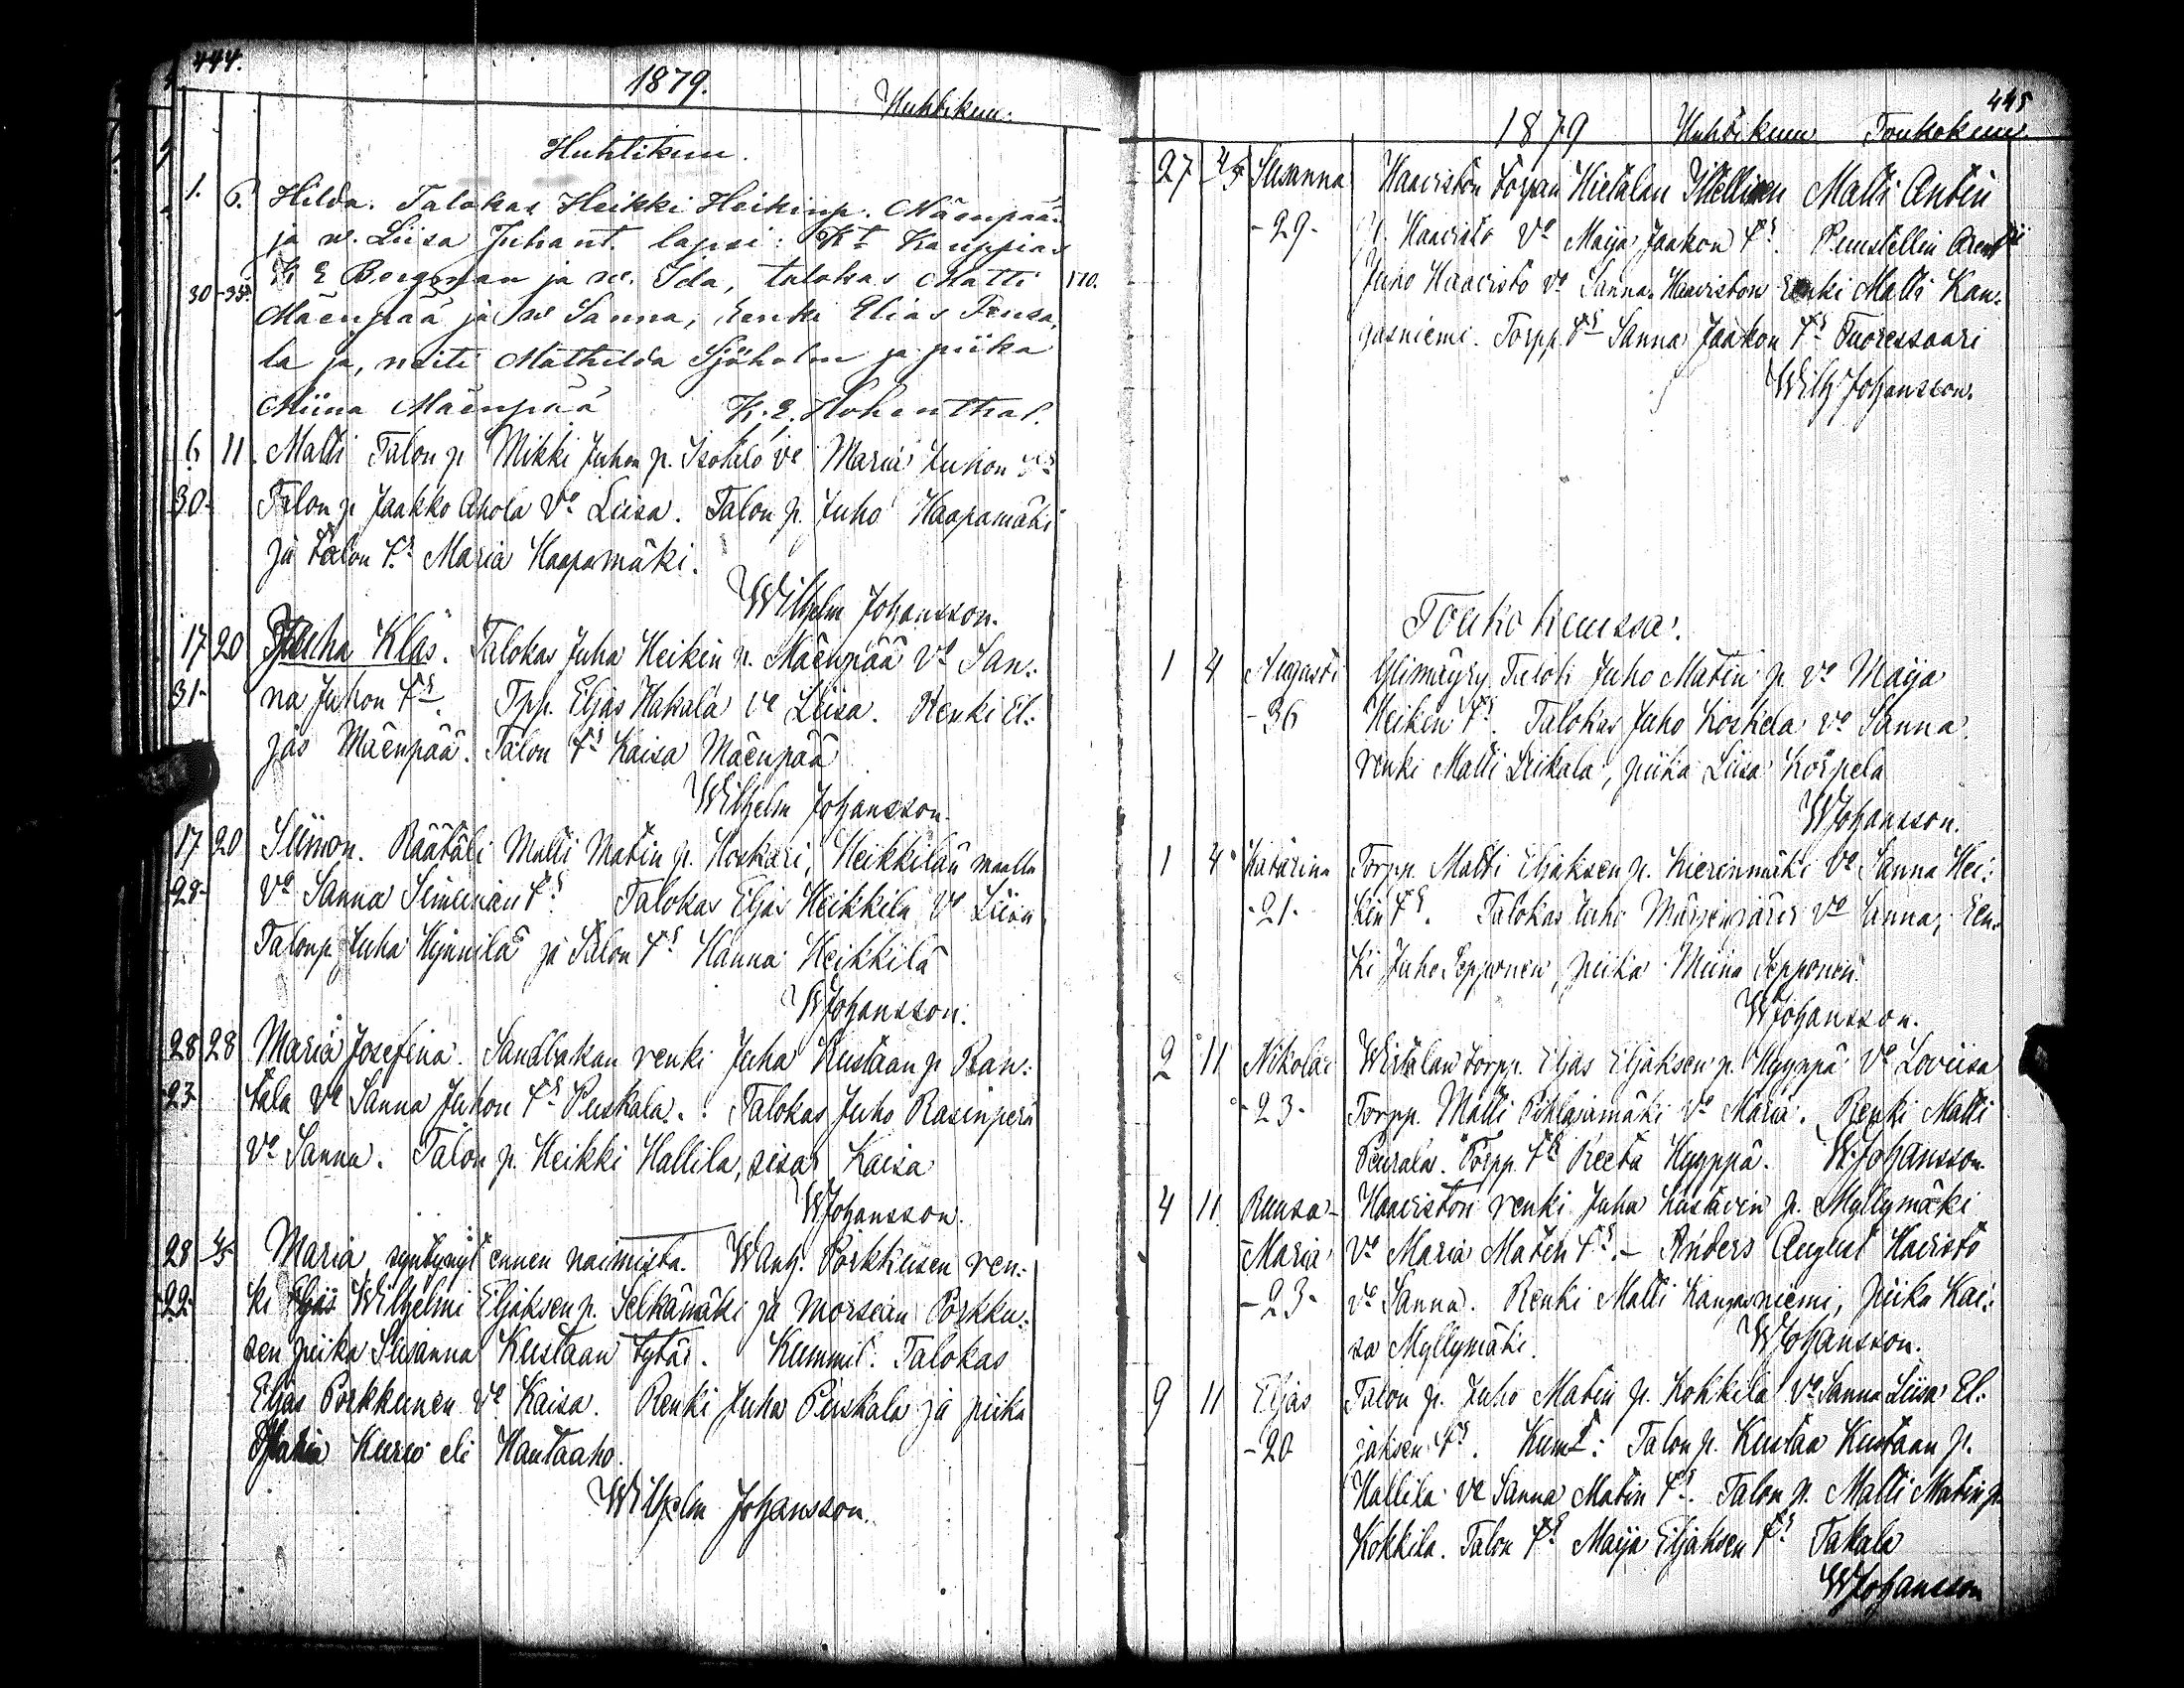 444.
1879. Huhtikuu.
Huhtikuu.
1. 6. Hilda. Talokas Heikki Heikinp. Mäenpään
ja w. Liisa Juhant. lapsi: Kt Kauppias
K E Borgman ja w. Ida, talokas Matti 170.
30-35
Mäenpää ja w Sanna, renki Elias
la ja, neiti Mathilda Sjöholm ja piika
Miina Mäenpää K. E. Hohenthal.
6 11. Matti Talon p Mikki Juhon p. Isotalo vo Maria Juhon tr
30- Talon p Jaakko Ahola Vo Liisa. Talon p. Juho Haapamäki
ja talon tr Maria Haapamäki.
Wilhelm Johansson.
17 20 Juha Klas. Talokas Juha Heikin p. Mäenpää Vo San:
31- na Juhon tr. Tpp. Eljas Hakala vo Liisa. Renki El:
jas Mäenpää. Talon tr Kaisa Mäenpää
Wilhelm Johansson.
17 20 Siimon. Räätäli Matti Matin p. Honkari, Heikkilän maalla
28- Vo Sanna Simunan tr. Talokas Eljas Heikkilä Vo Liisa
Talonp. Juha Hynnilä ja Talon tr Hanna Heikkilä
WJohansson.
28 28 Maria Josefina. Sandbakan renki Juha Kustaan p Ran:
23- tala Vo Sanna Juhon tr Puskala. Talokas Juho Rasinperä
Vo Sanna. Talon p. Heikki Hallila, sisar Kaisa
WJohansson.
28 4/5 Maria syntynyt ennen naimista. Wanh. Porkkusen ren:
22- ki Wilhelmi Eljaksen p. Selkämäki ja morsian Porkku:
sen piika Susanna Kustaan tytär. Kummit: Talokas
Eljas Porkkunen Vo Kaisa. Renki Juha Puskala ja piika
Maria Kurso eli Hautaaho.
Wilhelm Johansson.
445
1879 Huhtikuu Toukokuu
27 4/5 Susanna Haaviston torpan Hietalan Itellinen Matti Antin
-29- p. Haavisto Vo Maija Jaakon tr.
Juho Haavisto Vo Sanna. Haaviston Renki Matti Kan:
gasniemi. Torpp. tr Sanna Jaakon tr Tuoressaari
Wilh Johansson.
Toukokuussa.
1 4 Augusti Ylimäyry Juho Matin p. vo Maija
-36 Heikin tr. Talokas Juho Koskela vo Sanna.
renki Matti Liikala, piika Liisa Korpela
WJohansson.
1 4 Katarina Torpp. Matti Eljaksen p. Kierinmäki Vo Sanna Hei:
-21- kin tr. Talokas Juho Vo Sanna, Ren:
ki Juho Sepponen, piika Miina Sepponen.
WJohansson.
2 11 Nikolai Wistalan torpp. Eljas Eljaksen p. Hyyppä Vo Loviisa
-23- Torpp. Matti Pihlajamäki Vo Maria. Renki Matti
Peurala. Torpp. tr Reeta Hyyppä. W.Johansson.
4 11 Ruusa- Haaviston renki Juha Kustavin p. Myllymäki
Maria Vo Maria Matin tr. - Anders August Haavisto
-23- vo Sanna. Renki Matti Kangasniemi, piika Kai:
sa Myllymäki. WJohansson.
9 11 Eljas Talon p. Juho Matin p. Kokkila Vo Sanna Liisa El:
-20 jaksen tr. Kumt: Talon p. Kustaa Kustaan p.
Hallila Vo Sanna Matin tr. Talon p. Matti Matin p.
Kokkila. Talon tr Maija Eljaksen tr Takala
WJohansson